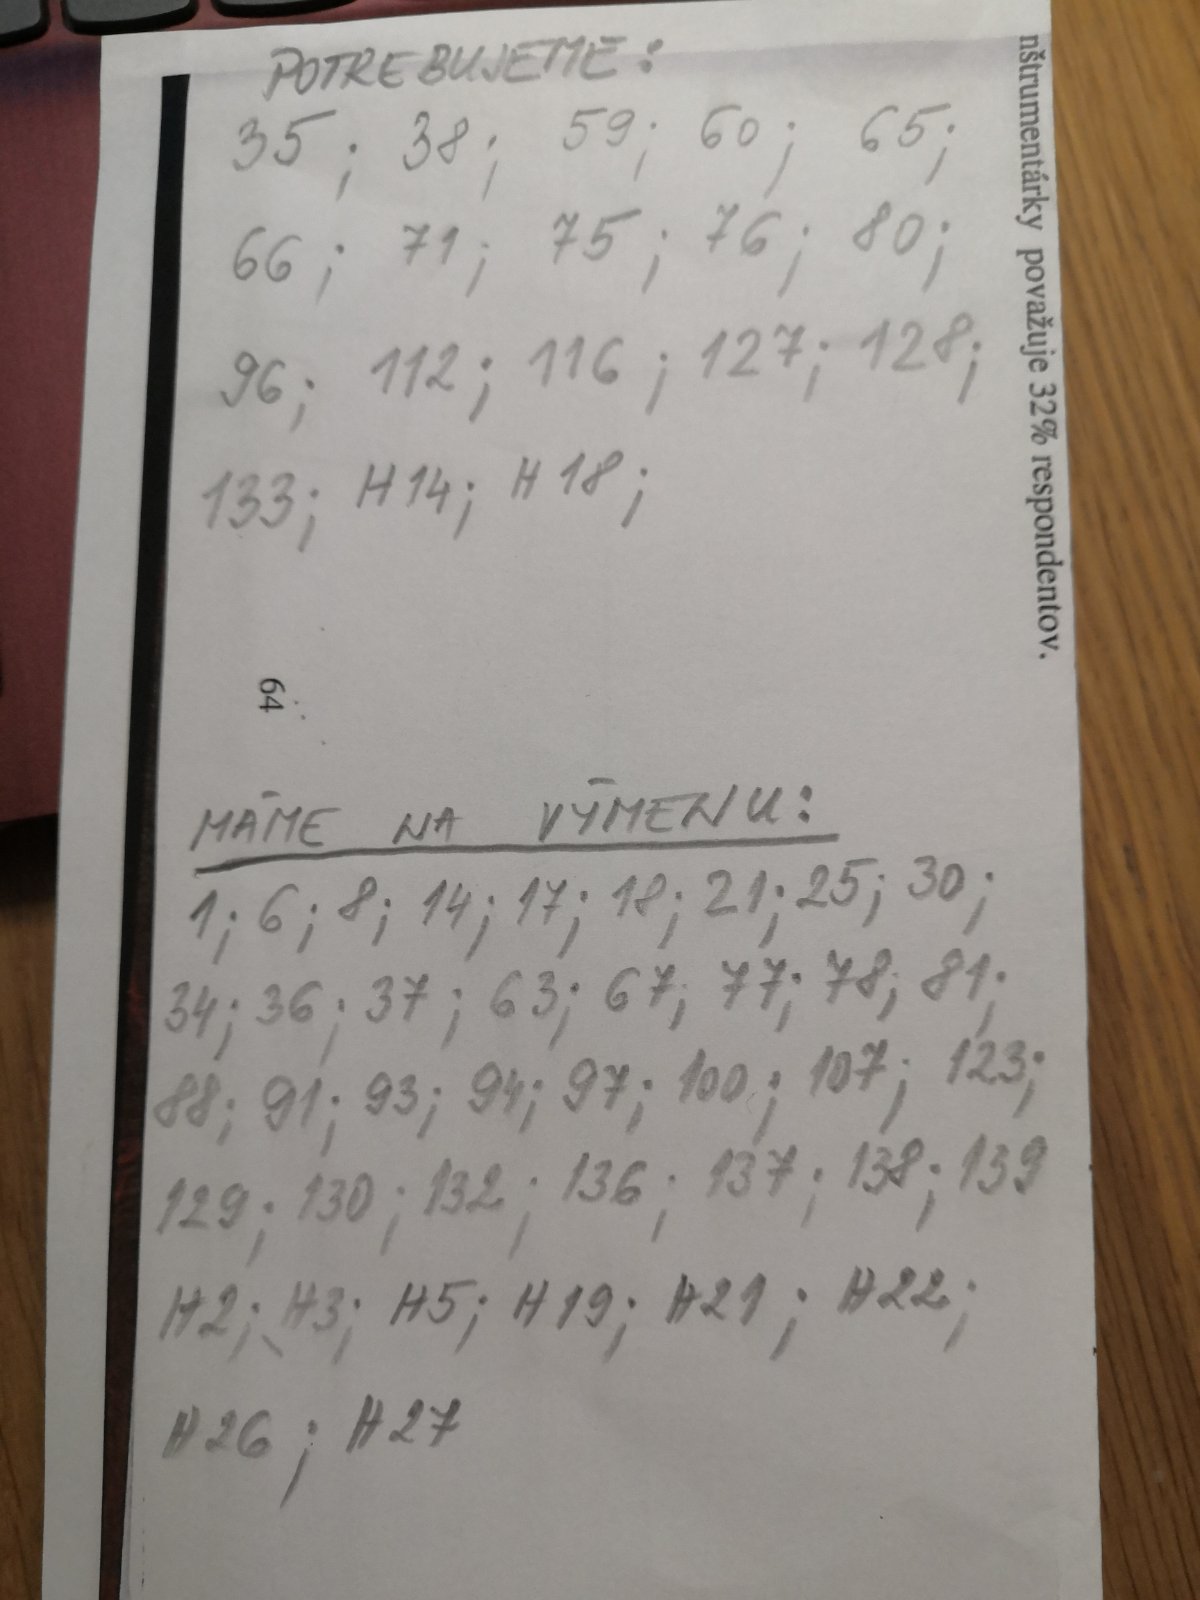 POTREBUJEME:
35; 38; 59; 60; 65;
66; 71; 75; 76; 80;
96; 112; 116; 127; 128;
133; H14; H18;
nštrumentárky považuje 32% respondentov.
64
MÁME NA VÝMENU:
1; 6; 8; 14; 17; 18; 21; 25; 30;
34; 36; 37; 63; 67; 77; 78; 81;
88; 91; 93; 94; 97; 100; 107; 123;
129; 130; 132; 136; 137; 138; 139
H2; H3; H5; H19; H21; H22;
H26; H27